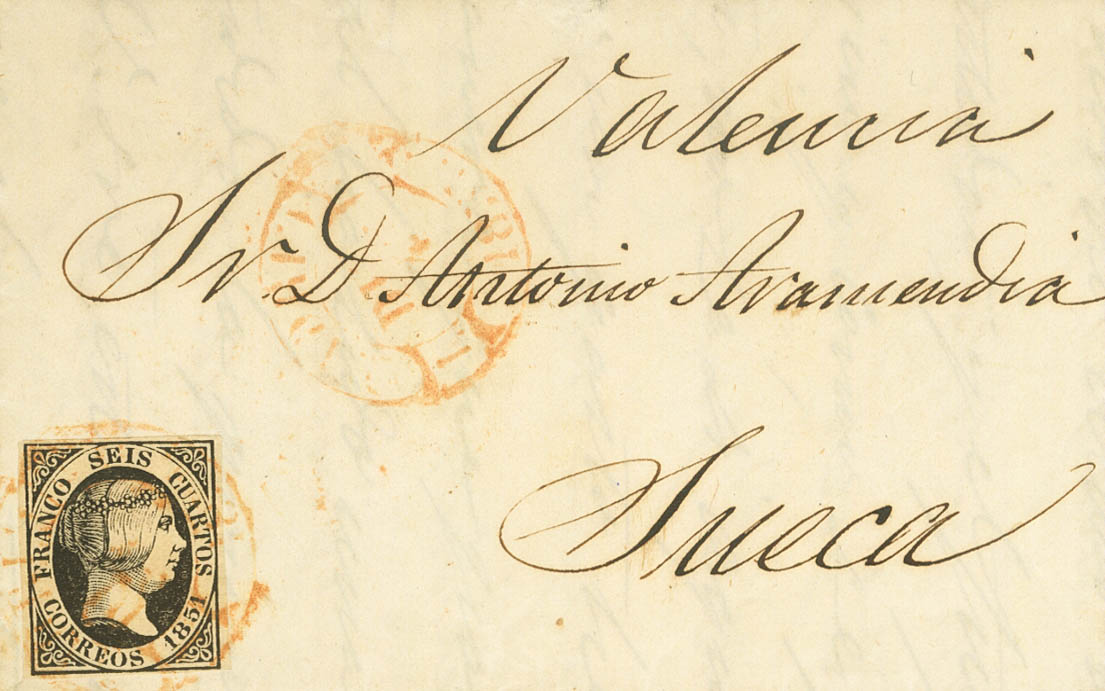 Valencia
Sr. D. Antonio Aramendia
Sueca
FRANCO SEIS CUARTOS
CORREOS 1851